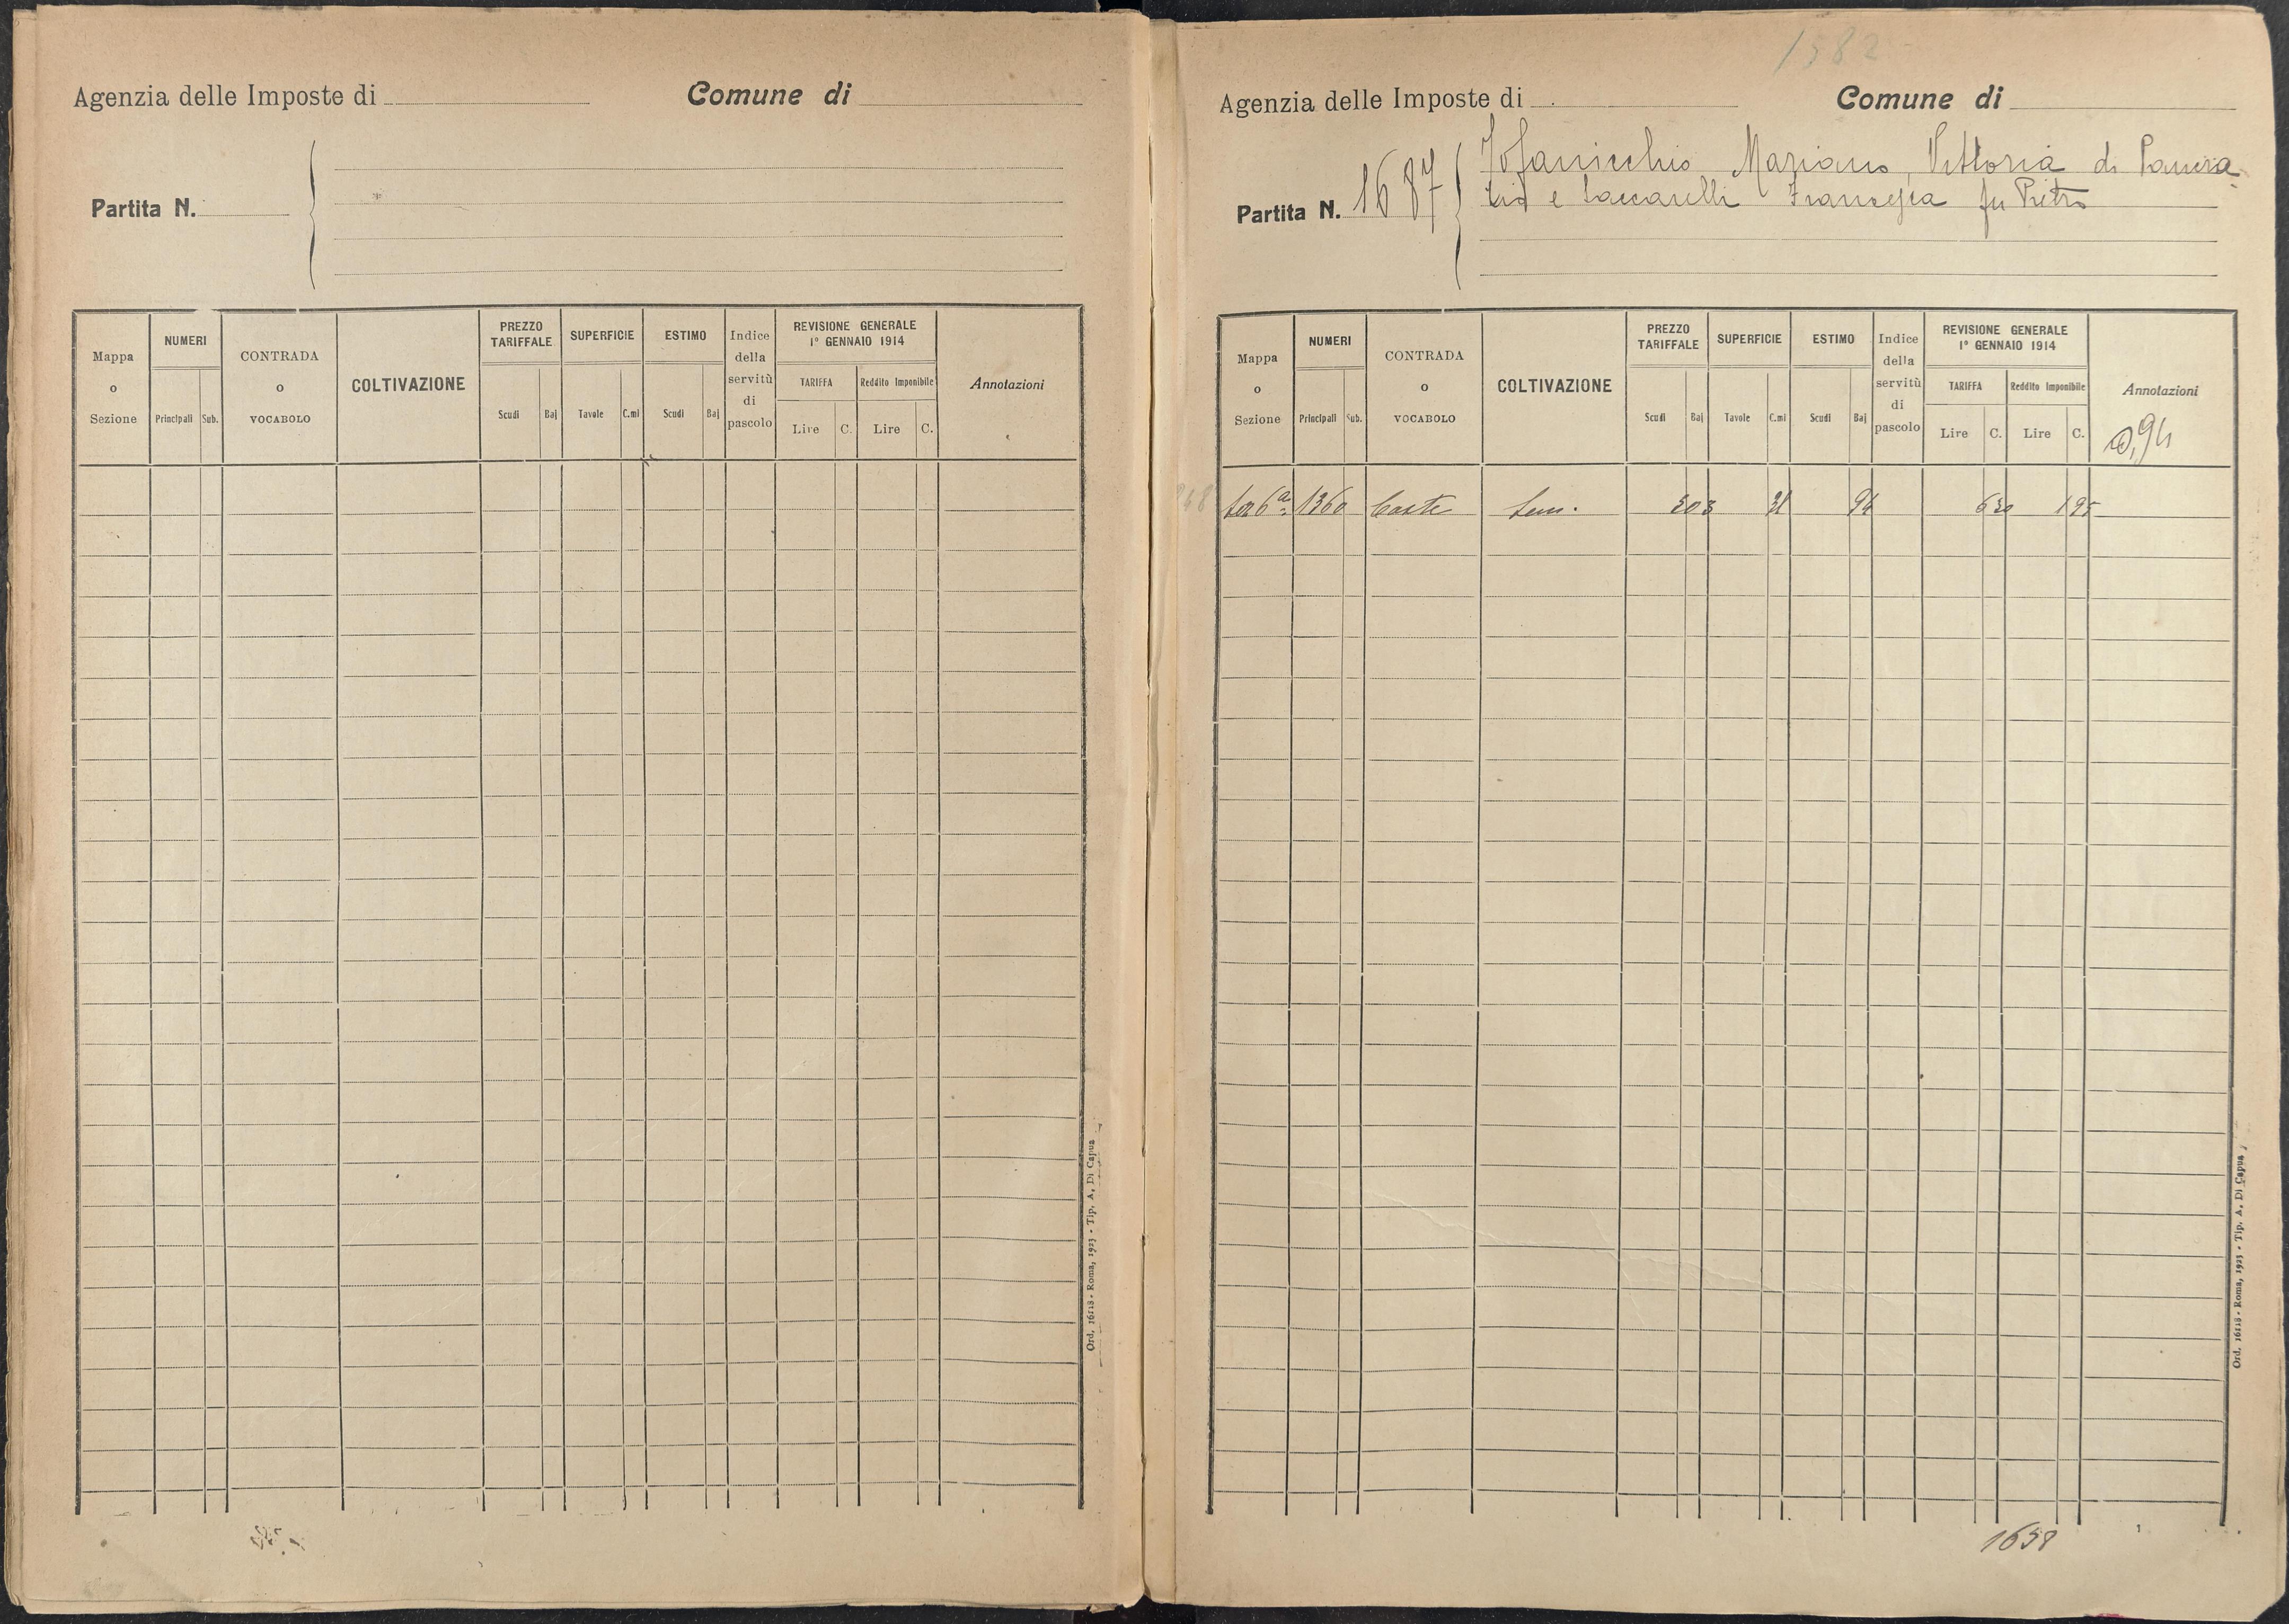 Agenzia delle Imposte di
Comune di
Partita N.
Mappa o Sezione
NUMERI
Principali
Sub.
CONTRADA o VOCABOLO
COLTIVAZIONE
PREZZO TARIFFALE
Scudi
Baj
SUPERFICIE
Tavole
C.mi
ESTIMO
Scudi
Baj
Indice della servitù di pascolo
REVISIONE GENERALE
1° GENNAIO 1914
TARIFFA
Reddito Imponibile
Lire
C.
Lire
C.
Annotazioni
Ord. 16118 - Roma, 1923 - Tip. A. Di Capua
1582
Agenzia delle Imposte di
Comune di
Partita N. 1687
Mariano, Vittoria di Pancra
zio e Francesca fu Pietro
Mappa o Sezione
NUMERI
Principali
Sub.
CONTRADA o VOCABOLO
COLTIVAZIONE
PREZZO TARIFFALE
Scudi
Baj
SUPERFICIE
Tavole
C.mi
ESTIMO
Scudi
Baj
Indice della servitù di pascolo
REVISIONE GENERALE
1° GENNAIO 1914
TARIFFA
Reddito Imponibile
Lire
C.
Lire
C.
Annotazioni
0,94
6ª 1360 Sem. 303 31 94 630 195
Ord. 16118 - Roma, 1923 - Tip. A. Di Capua
1638